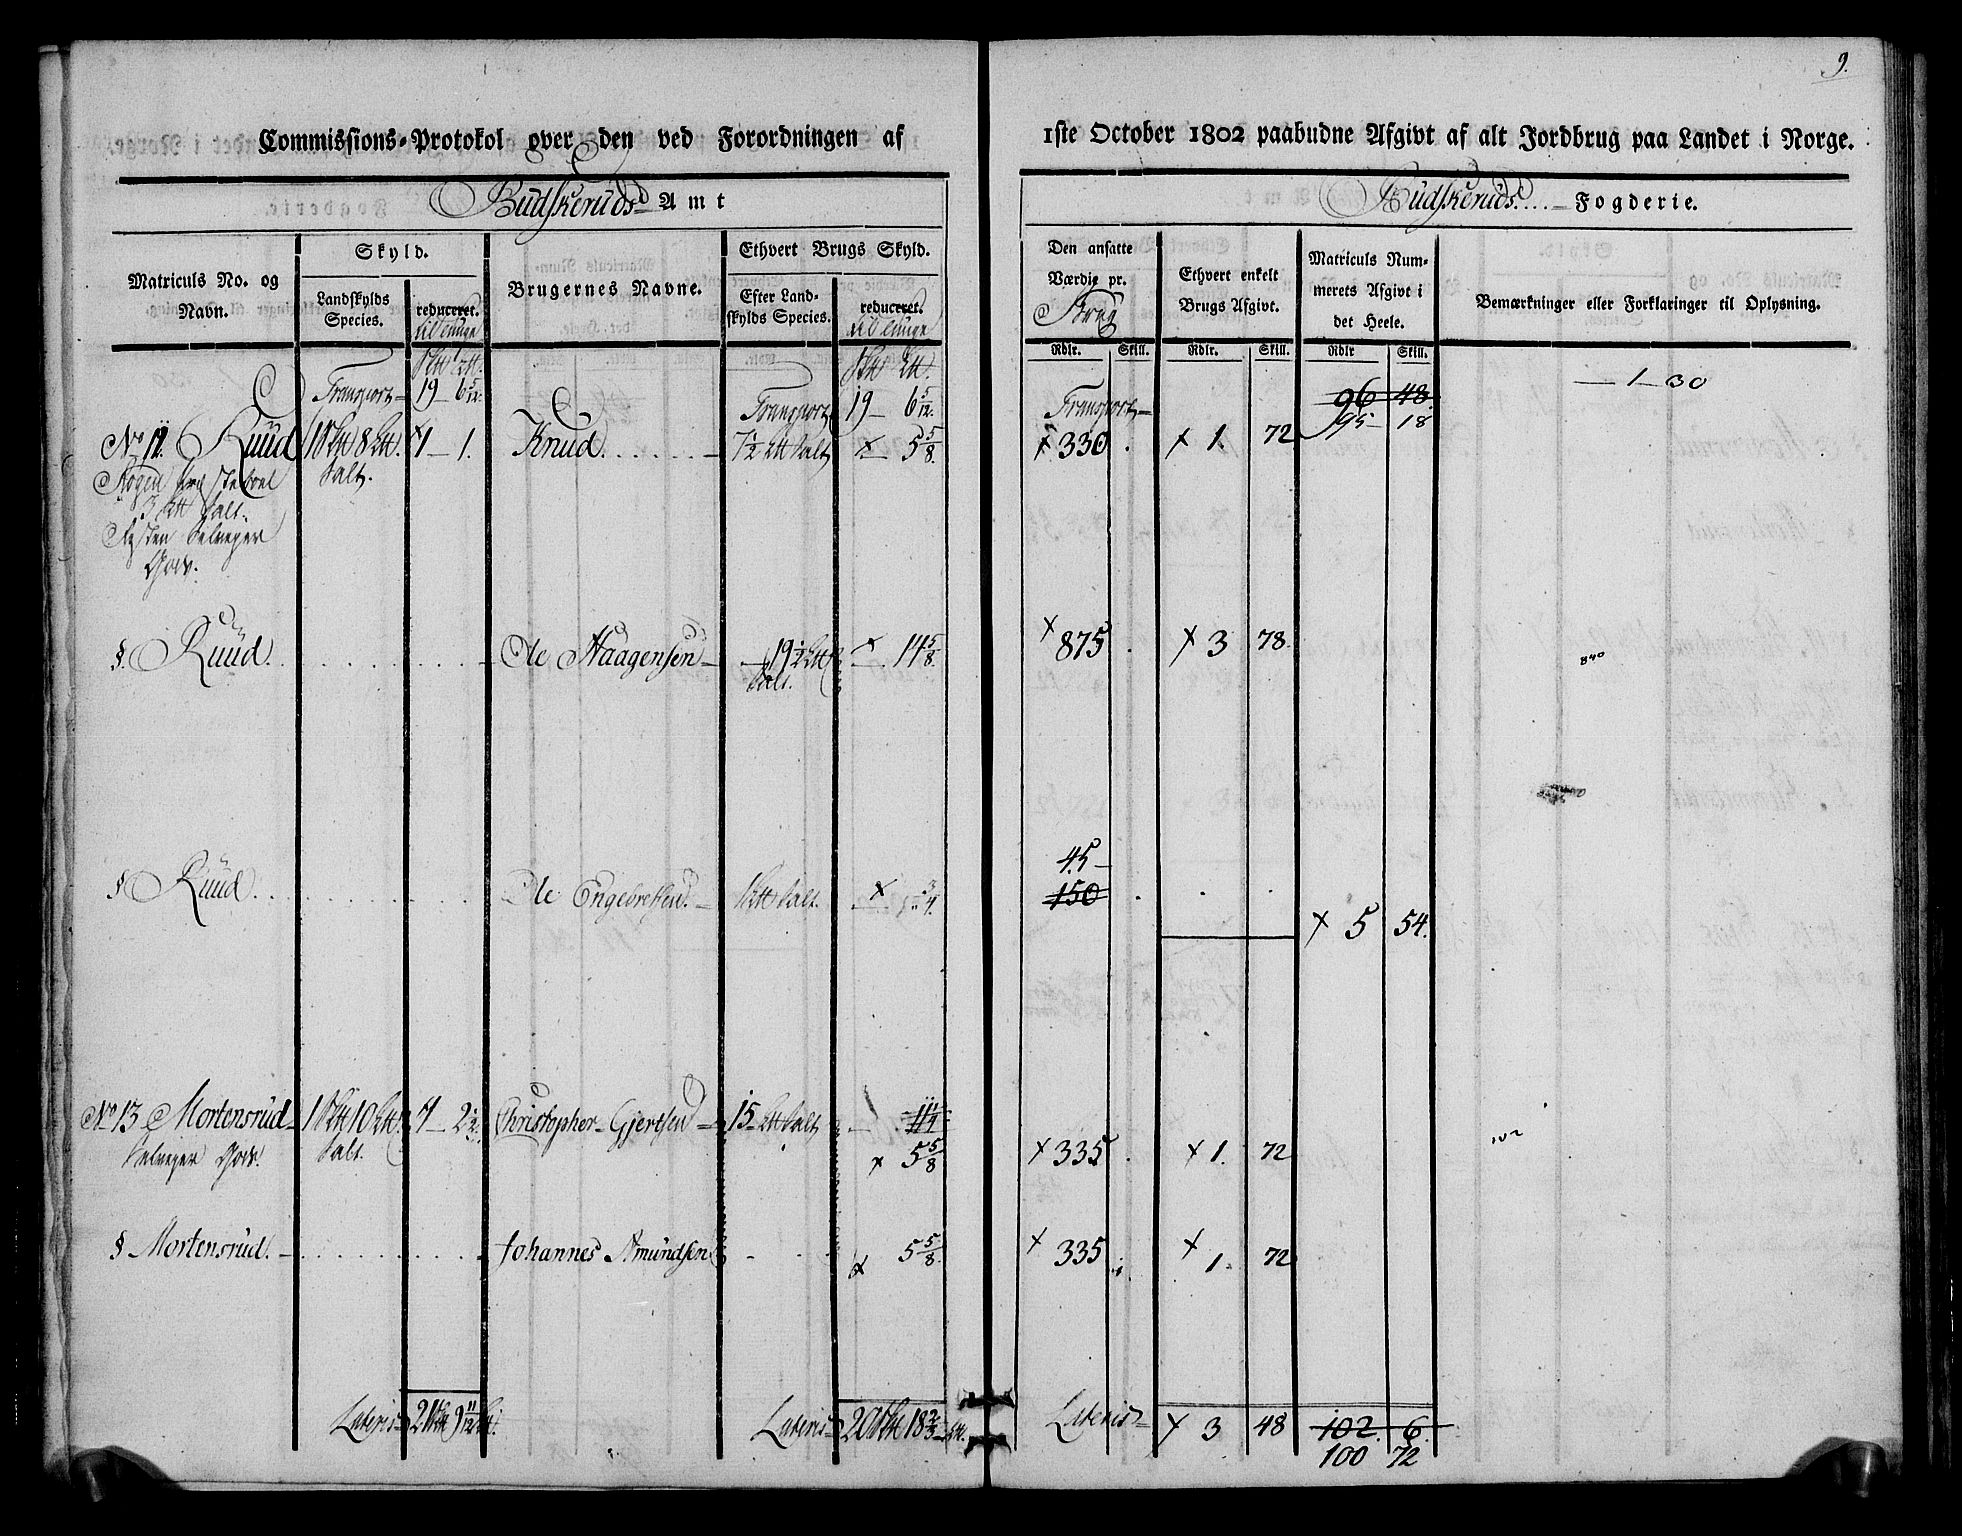 9.
Commissions-Protokol over den ved Forordningen af 1ste October 1802 paabudne Afgivt af alt Jordbrug paa Landet i Norge.
Budskeruds Amt
Budskeruds Fogderie.
Matriculs No. og Navn.
Skyld.
Landskylds Species.
reduceret.
Brugernes Navne.
Ethvert Brugs Skyld.
Efter Landskylds Species.
reduceret.
Den ansatte Værdie pr. Brug
Ethvert enkelt Brugs Afgivt.
Matriculs Nummerets Afgivt i det Heele.
Bemærkninger eller Forklaringer til Oplysning.
Rdlr. Skill. Rdlr. Skill. Rdlr Skill.
Transport 19 – 6 5/12. Transport 19 – 6 5/12. Transport 96 48. – 1 – 30
95 – 18
No 12. Ruud 1 8 Salt. 1 – 1. Knud 7 1/2 Salt × 5 5/8. × 330 × 1. 72
3 Salt.
Gods.
§. Ruud. Ole Haagensen 19 1/2 Salt. × 14 5/8. × 875 × 3 78.
840
§ Ruud Ole Engebretsen. Salt. × 3/4. 45 –
150
× 5 54.
No 13 Mortensrud 1 10 Salt. 1 – 2 1/2. Christopher Gjertsen 15 Salt
Selveyer Gods. × 5 5/8 × 335 × 1. 72
102
§ Mortensrud. Johannes Amundsen × 5 5/8. × 335 × 1. 72
Lateris 21 9 11/12 Lateris 20 18 2/3 Lateris × 3 48 102. 6.
100 72